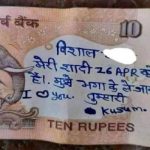 र्व बैंक
10
विशाल
मेरी शादी 26 APR को
है। मुझे भगा के ले जाना
I you. तुम्हारी
kusum.
TEN RUPEES